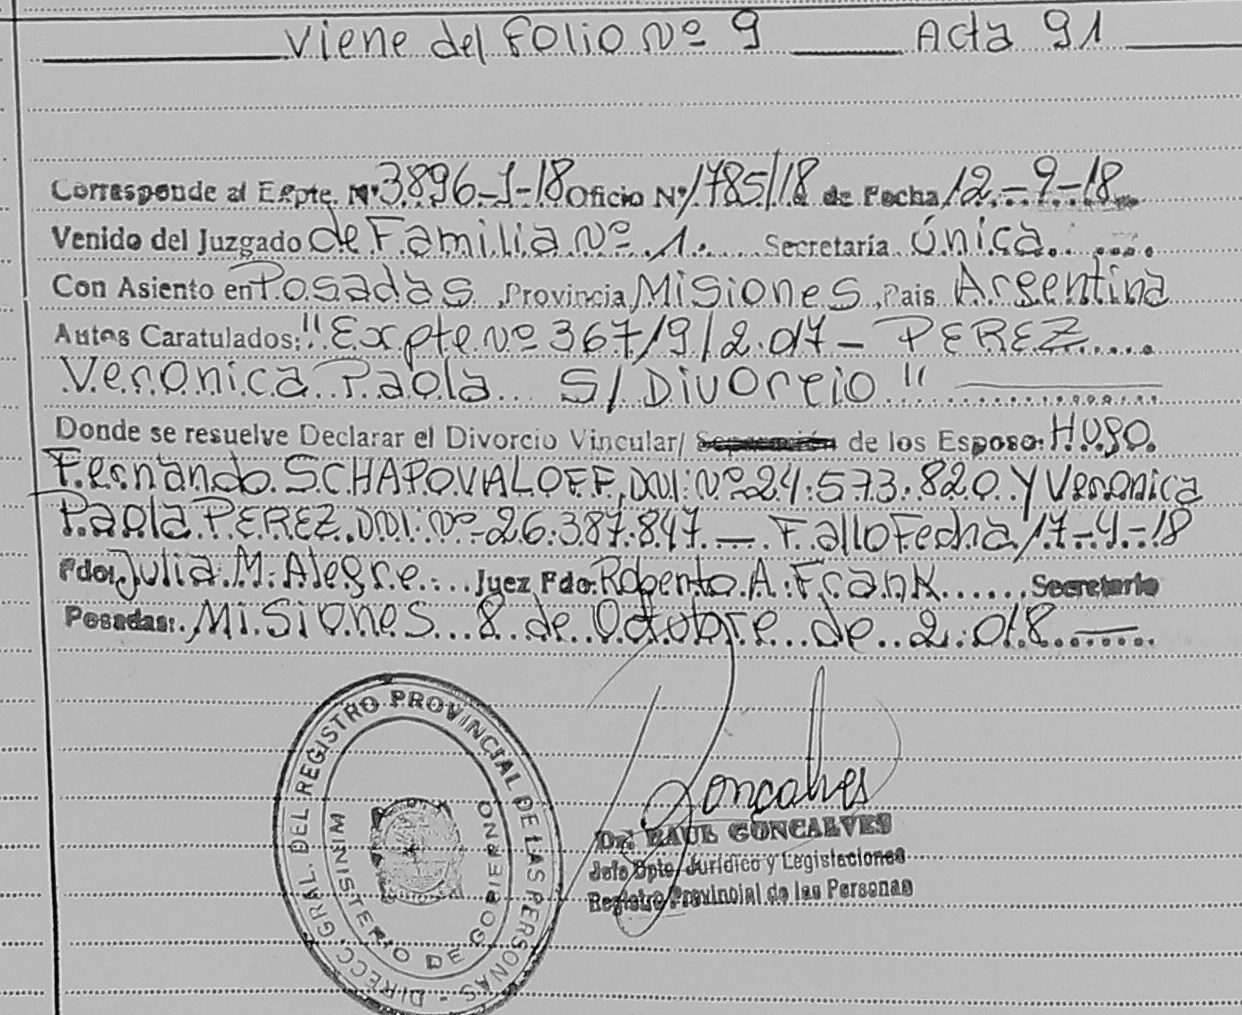 Viene del Folio Nº 9 Acta 91
Corresponde al Expte. Nº 3896-1-18 Oficio Nº 1785/18 de Fecha 12-9-18
Venido del Juzgado de Familia Nº 1. Secretaría Única.
Con Asiento en Posadas Provincia Misiones País Argentina
Autos Caratulados: "Expte Nº 367/9/2.017 - PEREZ
Veronica Paola S/ Divorcio"
Donde se resuelve Declarar el Divorcio Vincular/ Separación de los Esposo: Hugo
Fernando SCHAPOVALOFF, DNI: Nº 24.573.820 Y Veronica
Paola PEREZ. DNI: Nº 26.387.847. — Fallo Fecha 17-4-18
Fdo: Julia M. Alegre. Juez Fdo: Roberto A. Frank Secretario
Posadas: Misiones 8 de Octubre de 2.018. —
DIRECC. GRAL. DEL REGISTRO PROVINCIAL DE LAS PERSONAS -
MINISTERIO DE GOBIERNO
Goncalves
Dr. RAUL GONCALVES
Jefe Dpto. Jurídico y Legislaciones
Registro Provincial de las Personas